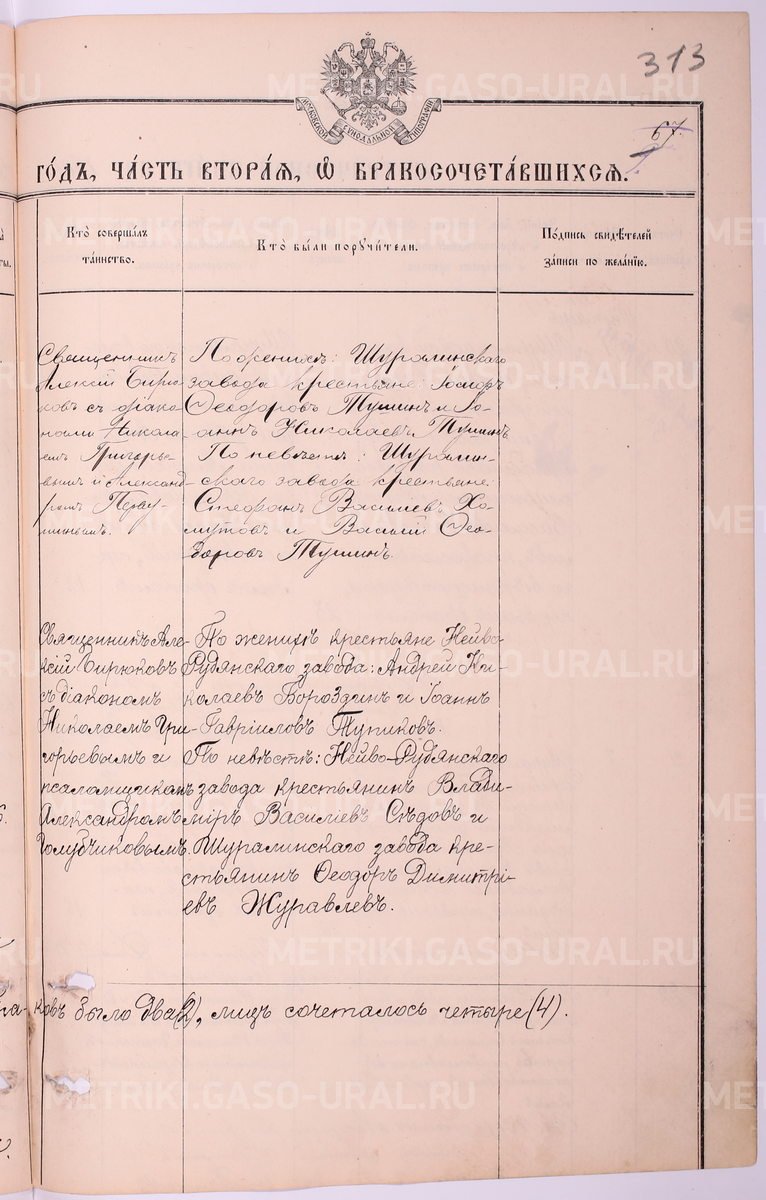 313
МОСКОВСКОЙ СѴНОДАЛЬНОЙ ТИПОГРАФІИ
67.
ГО́ДЪ, ЧА́СТЬ ВТОРА́Я, Ѡ҆ БРАКОСОЧЕТА́ВШИХСЯ.
Кто̀ соверша́лъ
та́инство.
Кто̀ бы́ли порꙋчи́тели.
По́дпись свидѣ́телей
за́писи по жела́нїю.
Священникъ
Алексій Бирю
ковъ съ діако-
нами Никола
емъ Григорье-
вымъ и Александ
ромъ
По женихѣ: Шуралинскаго
завода крестьяне:
Ѳеодоровъ Тушинъ и Іо-
аннъ Николаевъ Тушинъ.
По невѣстѣ: Шуралин-
скаго завода крестьяне:
Стефанъ Василіевъ Хо-
мутовъ и Василій Ѳео-
доровъ Тушинъ.
Священникъ Але-
ксій Бирюковъ
съ діакономъ
Николаемъ Гри-
горьевымъ и
псаломщикомъ
Александромъ
Голубчиковымъ.
По женихѣ крестьяне Нейво-
Рудянскаго завода: Андрей Ни-
колаевъ Бороздинъ и Іоаннъ
Гавріиловъ Тупиковъ.
По невѣстѣ: Нейво-Рудянскаго
завода крестьянинъ Влади-
міръ Василіевъ Сѣдовъ и
Шуралинскаго завода кре-
стьянинъ Ѳеодоръ Димитрі-
евъ Журавлевъ.
ковъ было два (2), лицъ сочеталось четыре (4).
METRIKI.GASO-URAL.RU